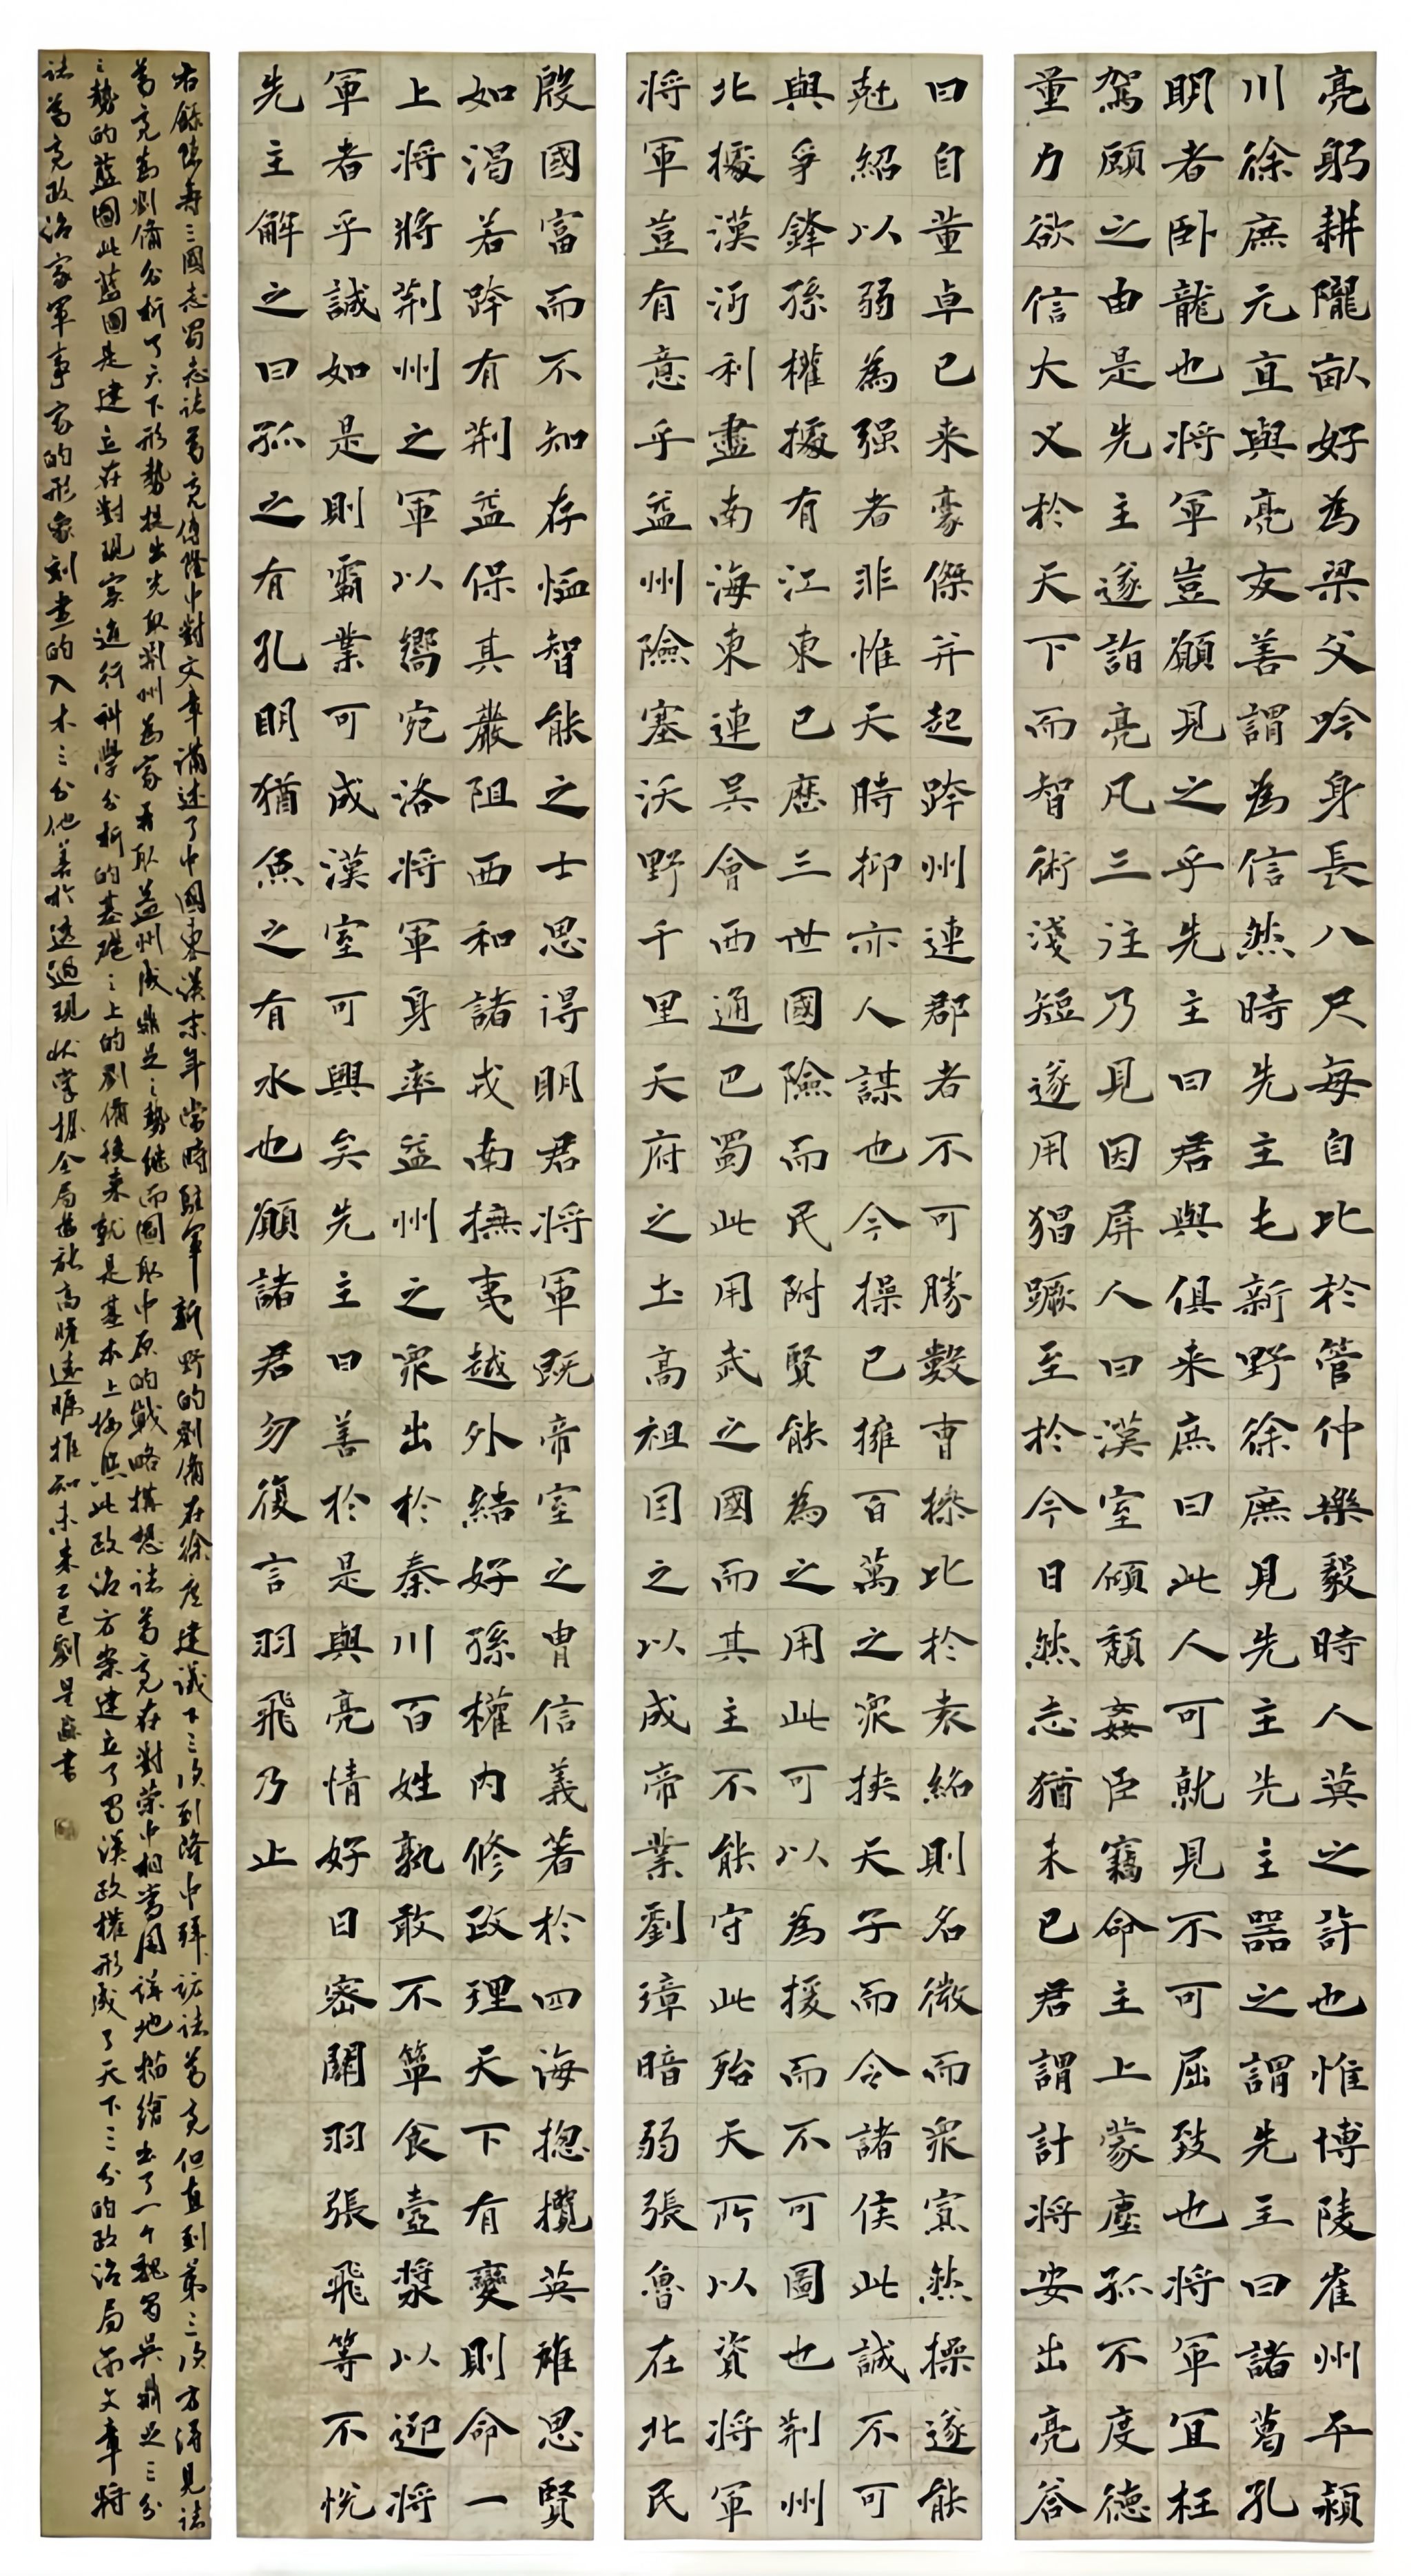 亮躬耕隴畝好為梁父吟身長八尺每自比於管仲樂毅時人莫之許也惟博陵崔州平潁
川徐庶元直與亮友善謂為信然時先主屯新野徐庶見先主先主器之謂先主曰諸葛孔
明者臥龍也將軍豈願見之乎先主曰君與俱来庶曰此人可就見不可屈致也將軍宜枉
駕顧之由是先主遂詣亮凡三往乃見因屏人曰漢室傾頹姦臣竊命主上蒙塵孤不度德
量力欲信大义於天下而智術淺短遂用猖蹶至於今日然志猶未已君謂計將安出亮答
曰自董卓已来豪傑并起跨州連郡者不可勝數曹操比於袁紹則名微而眾寡然操遂能
尅紹以弱為强者非惟天時抑亦人謀也今操已擁百萬之眾挾天子而令諸侯此誠不可
與爭鋒孫權據有江東已歷三世國險而民附賢能為之用此可以為援而不可圖也荆州
北據漢沔利盡南海東連吳會西通巴蜀此用武之國而其主不能守此殆天所以資將軍
將軍豈有意乎益州險塞沃野千里天府之土高祖因之以成帝業劉璋暗弱張魯在北民
殷國富而不知存恤智能之士思得明君將軍既帝室之冑信義著於四海揔攬英雄思賢
如渴若跨有荆益保其巖阻西和諸戎南撫夷越外結好孫權内修政理天下有變則命一
上將將荆州之軍以嚮宛洛將軍身率益州之眾出於秦川百姓孰敢不簞食壺漿以迎將
軍者乎誠如是則霸業可成漢室可興矣先主曰善於是與亮情好日密關羽張飛等不悅
先主解之曰孤之有孔明猶魚之有水也願諸君勿復言羽飛乃止
右錄陳壽三國志蜀志諸葛亮傳隆中對文章講述了中國東漢末年當時駐軍新野的劉備在徐庶建議下三次到隆中拜訪諸葛亮但直到第三次方得見諸
葛亮為劉備分析了天下形勢提出先取荆州為家再取益州成鼎足之勢繼而圖取中原的戰略構想諸葛亮在對策中相當周詳地描繪出了一个魏蜀吳鼎足三分
之勢的藍圖此藍圖是建立在對現實進行科學分析的基礎之上的劉備後来就是基本上按照此政治方案建立了蜀漢政權形成了天下三分的政治局面文章將
諸葛亮政治家軍事家的形象刻畫的入木三分他善於透過現狀掌握全局故能高瞻遠矚推知未来乙巳劉星 書